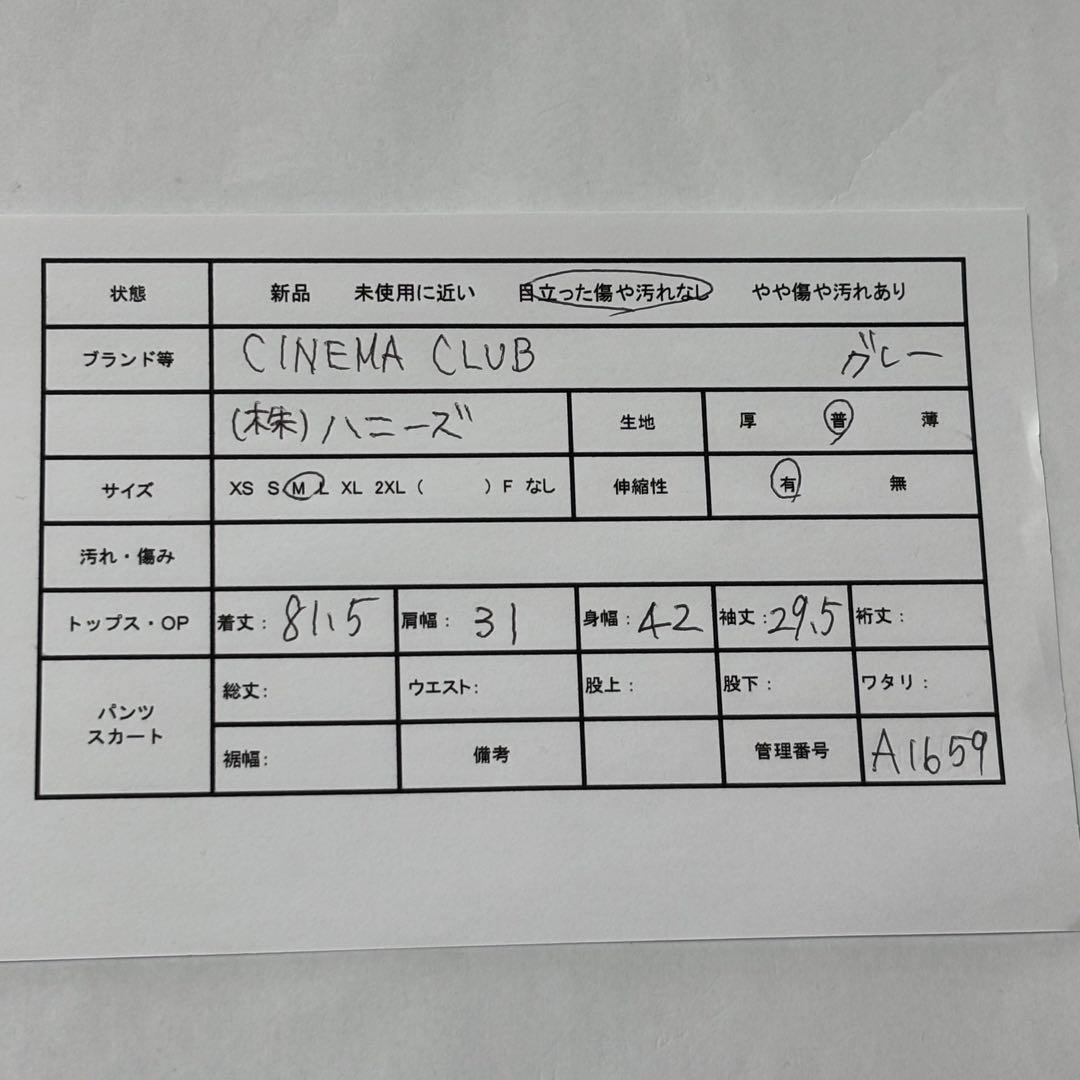 状態 新品 未使用に近い 目立った傷や汚れなし やや傷や汚れあり
ブランド等 CINEMA CLUB グレー
(株)ハニーズ 生地 厚 普 薄
サイズ XS S M L XL 2XL ( ) F なし 伸縮性 有 無
汚れ・傷み
トップス・OP 着丈: 81.5 肩幅: 31 身幅: 42 袖丈: 29.5 裄丈:
パンツ
スカート
総丈: ウエスト: 股上: 股下: ワタリ:
裾幅: 備考 管理番号 A1659